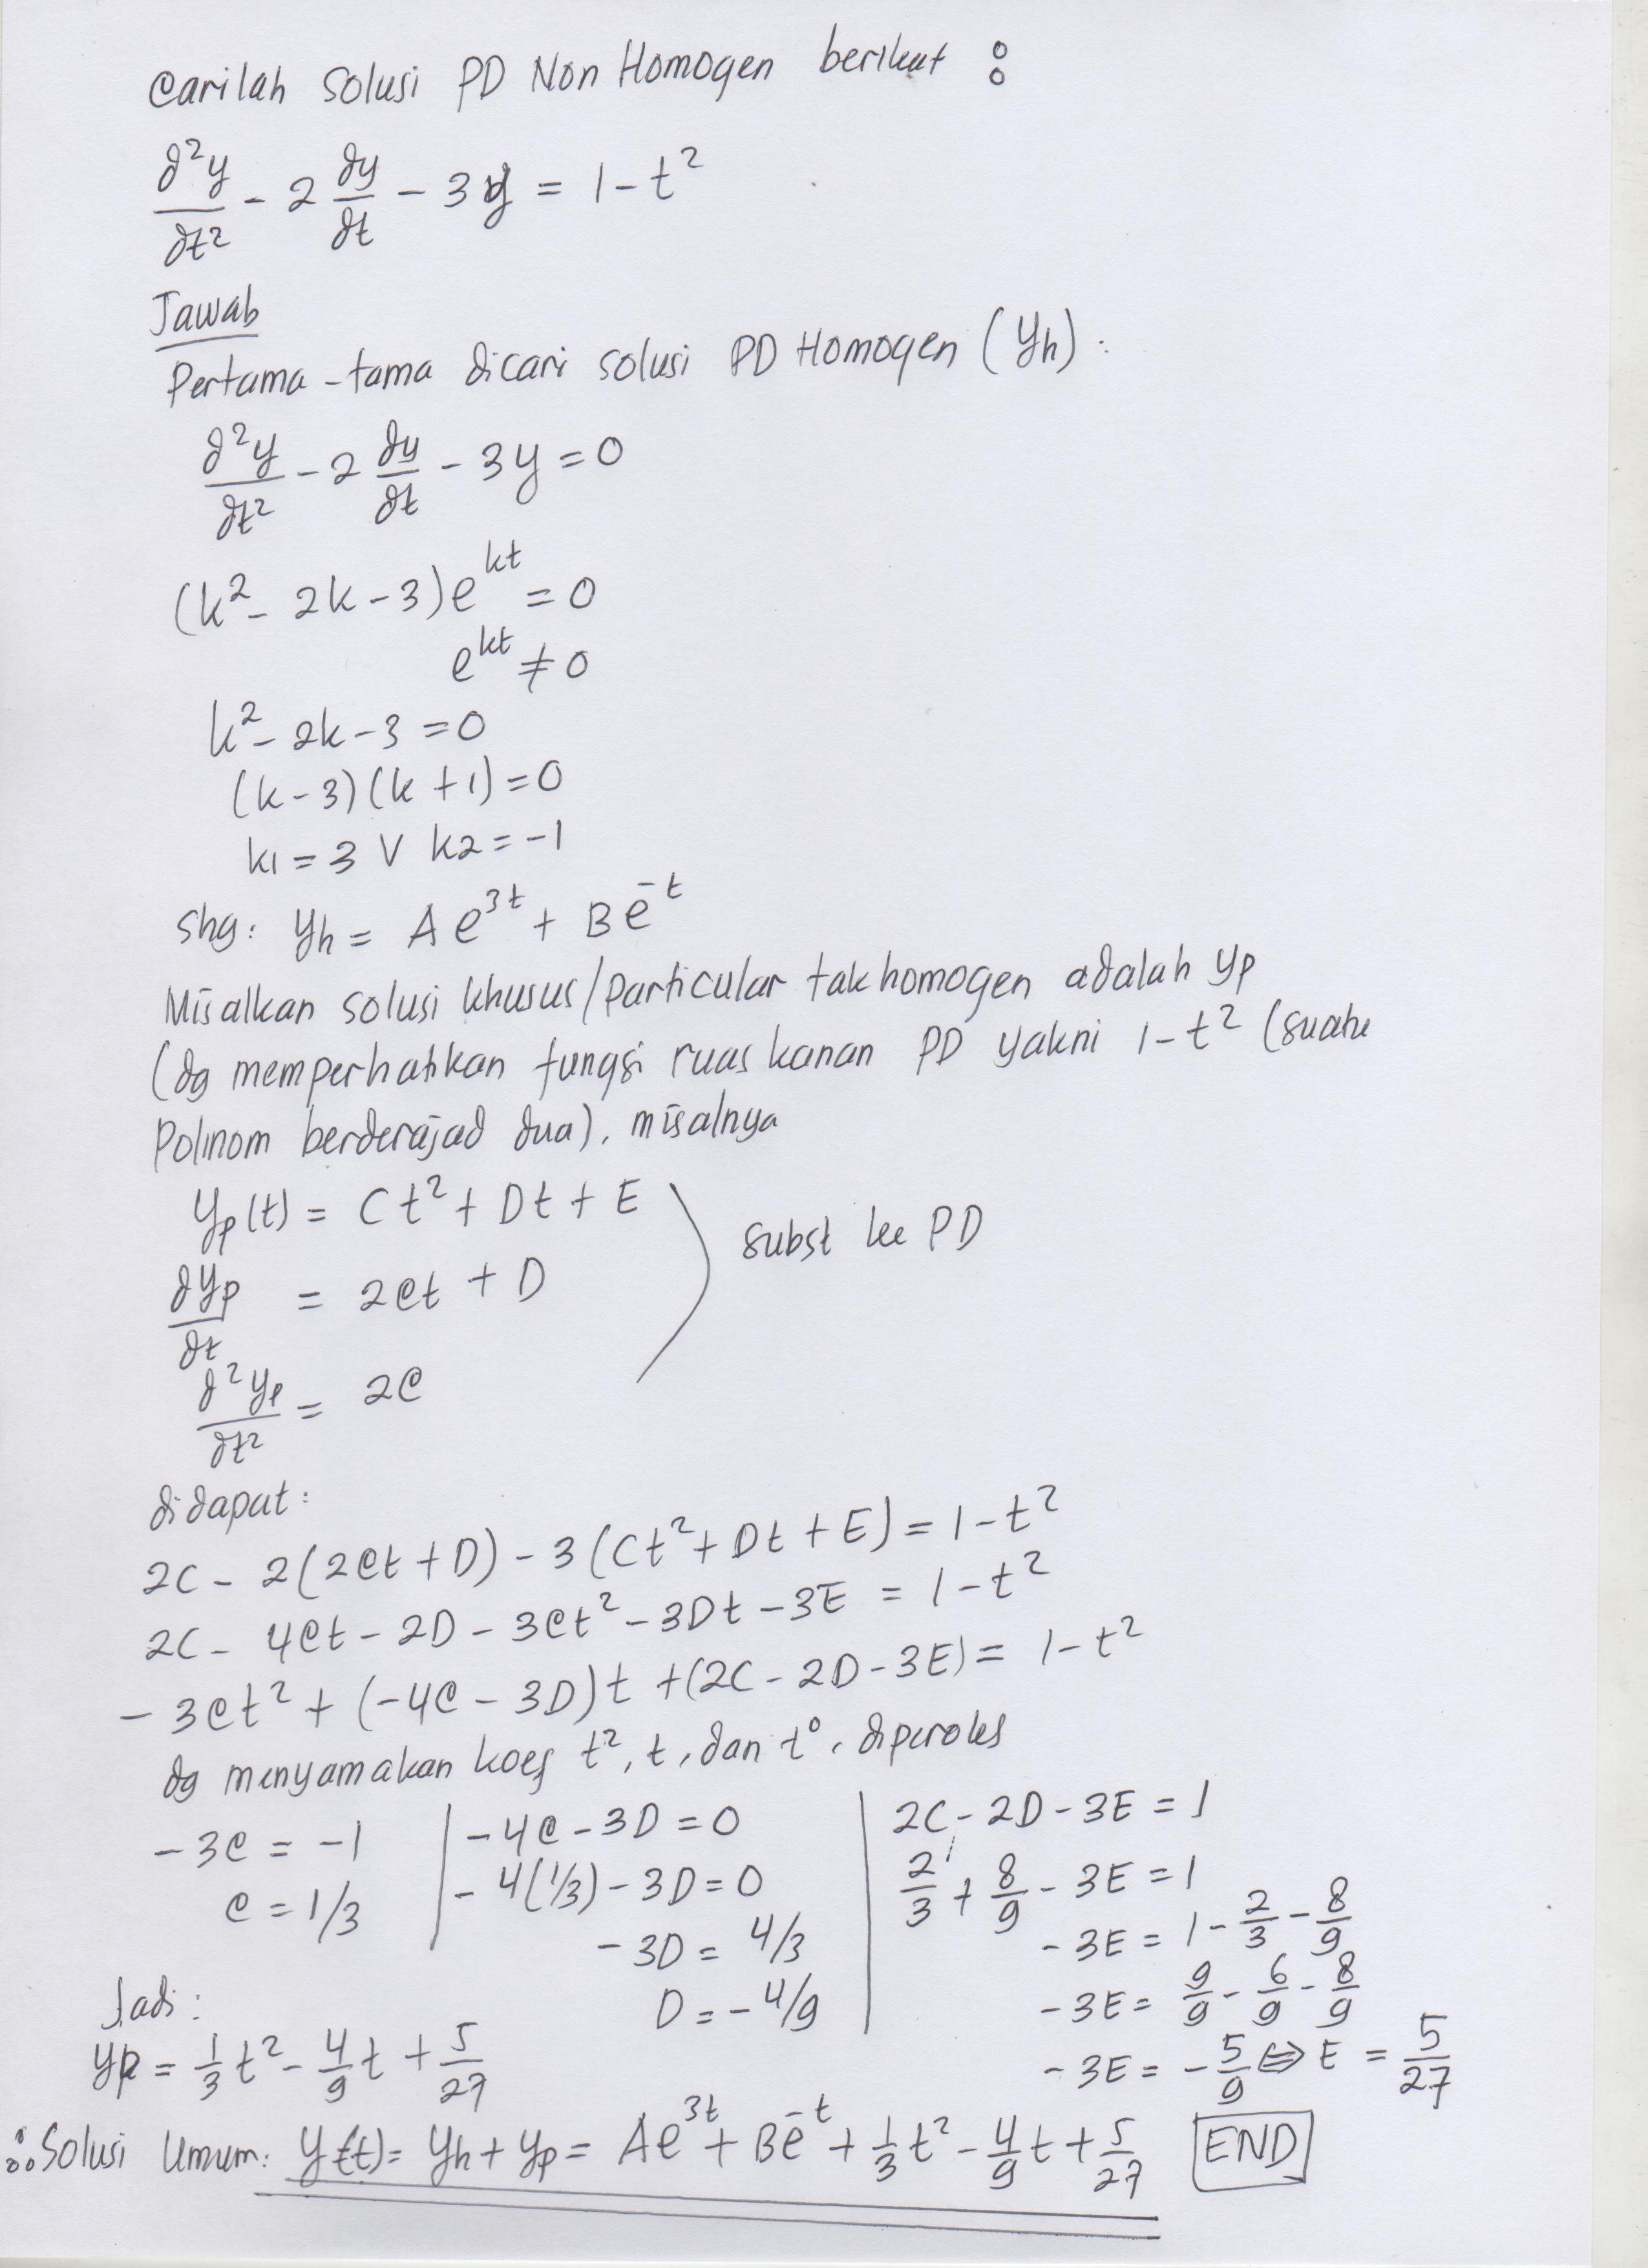 Carilah solusi PD Non Homogen berikut :
∂²y/∂t² - 2 ∂y/∂t - 3y = 1 - t²
Jawab
Pertama-tama dicari solusi PD Homogen (yh) :
∂²y/∂t² - 2 ∂y/∂t - 3y = 0
(k² - 2k - 3)e^kt = 0
e^kt ≠ 0
k² - 2k - 3 = 0
(k - 3)(k + 1) = 0
k1 = 3 V k2 = -1
Shg: yh = A e^3t + B e^-t
Misalkan solusi khusus/particular tak homogen adalah yp
(dg memperhatikan fungsi ruas kanan PD yakni 1 - t² (suatu
Polinom berderajad dua), misalnya
yp(t) = Ct² + Dt + E
subst ke PD
∂yp/∂t = 2Ct + D
∂²yp/∂t² = 2C
didapat :
2C - 2(2Ct + D) - 3(Ct² + Dt + E) = 1 - t²
2C - 4Ct - 2D - 3Ct² - 3Dt - 3E = 1 - t²
- 3Ct² + (-4C - 3D)t + (2C - 2D - 3E) = 1 - t²
dg menyamakan koef t², t, dan t⁰, diperoleh
-3C = -1
C = 1/3
-4C - 3D = 0
-4(1/3) - 3D = 0
-3D = 4/3
D = -4/9
2C - 2D - 3E = 1
2/3 + 8/9 - 3E = 1
-3E = 1 - 2/3 - 8/9
-3E = 9/9 - 6/9 - 8/9
-3E = -5/9 ⇔ E = 5/27
Jadi :
yp = 1/3 t² - 4/9 t + 5/27
∴ Solusi Umum: y(t) = yh + yp = Ae^3t + Be^-t + 1/3 t² - 4/9 t + 5/27 END